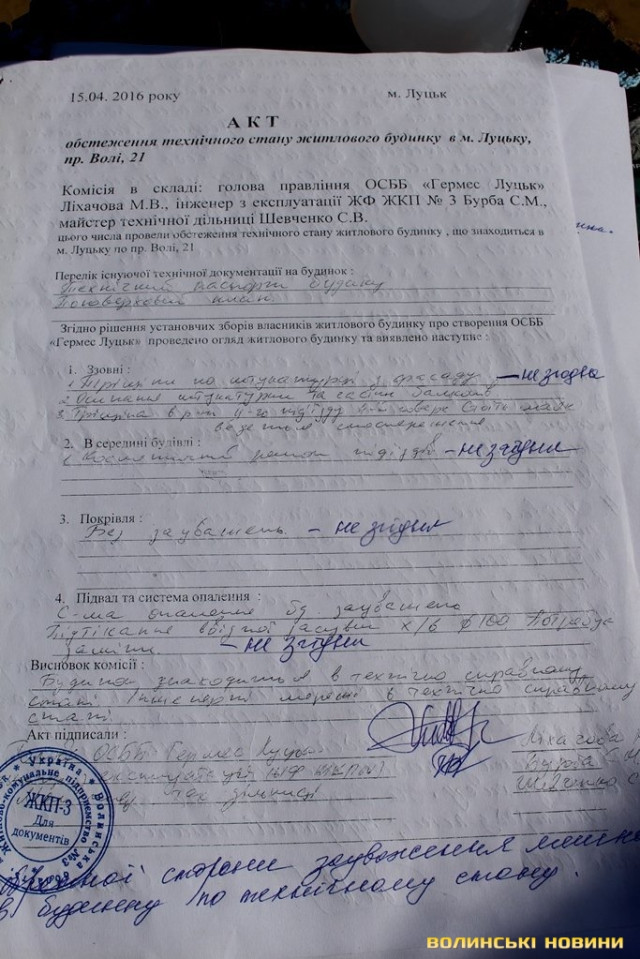 15.04. 2016 року м. Луцьк
А К Т
обстеження технічного стану житлового будинку в м. Луцьку,
пр. Волі, 21
Комісія в складі: голова правління ОСББ «Гермес Луцьк»
Ліхачова М.В., інженер з експлуатації ЖФ ЖКП № 3 Бурба С.М.,
майстер технічної дільниці Шевченко С.В.
цього числа провели обстеження технічного стану житлового будинку , що знаходиться в
м. Луцьку по пр. Волі, 21
Перелік існуючої технічної документації на будинок :
Технічний паспорт будинку
Поповерховий план
Згідно рішення установчих зборів власників житлового будинку про створення ОСББ
«Гермес Луцьк» проведено огляд житлового будинку та виявлено наступне :
1. Ззовні :
1 Тріщини по штукатурці з фасаду – не згодна
2 Осипання штукатурки балконів
3 Тріщина в 11-го під'їзду маяк
ведеться спостереження
2. В середині будівлі :
Косметичний ремонт під'їздів – не згідна
3. Покрівля :
Без зауважень – не згідна
4. Підвал та система опалення :
С-ма опалення зауважень
Підтікання ввідної засувки х/в ф 100 Потребує
заміни – не згідна
Висновок комісії :
Будинок знаходиться в технічно справному
стані Інженерні мережі в технічно справному
стані
Акт підписали :
ОСББ Гермес Луцьк Ліхачова
ЖКП №3 Бурба С.М
Шевченко С
Україна Волинська
Житлово-комунальне підприємство №3
ЖКП-3
Для
документів
сторони зауваження
в будинку по технічному стану.
ВОЛИНСЬКІ НОВИНИ